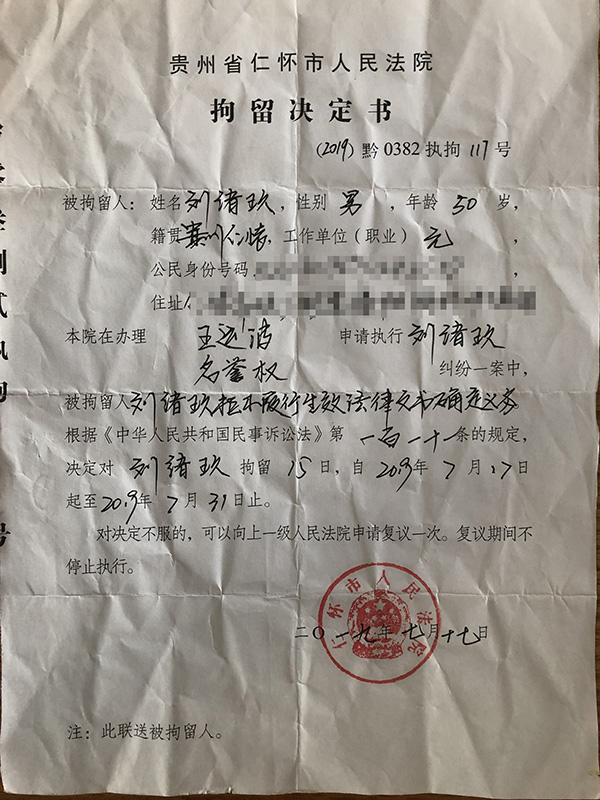 贵州省仁怀市人民法院
拘留决定书
(2019)黔0382执拘117号
被拘留人：姓名刘绪玖，性别男，年龄50岁，
籍贯贵州仁怀，工作单位（职业）无，
公民身份号码，
住址
本院在办理 王远波 申请执行 刘绪玖
名誉权 纠纷一案中，
被拘留人刘绪玖拒不履行生效法律文书确定义务
根据《中华人民共和国民事诉讼法》第一百一十一条的规定，
决定对 刘绪玖 拘留15日，自2019年7月17日
起至2019年7月31日止。
对决定不服的，可以向上一级人民法院申请复议一次。复议期间不
停止执行。
仁怀市人民法院
二〇一九年七月十七日
注：此联送被拘留人。